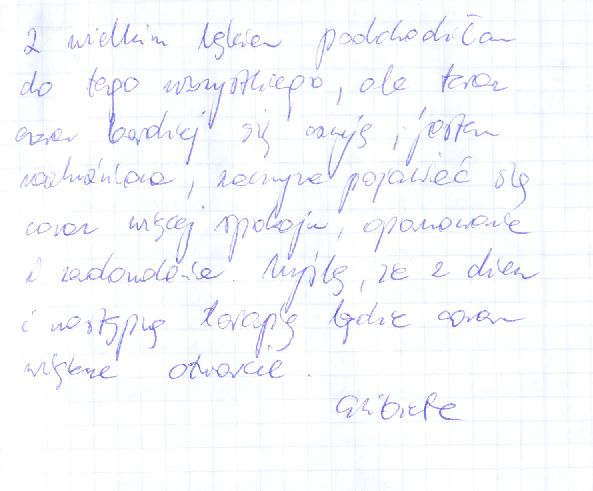 z wielkim lękiem podchodziłam
do tego wszystkiego, ale teraz
coraz bardziej się czuję, jestem
rozluźniona, zaczyna pojawiać się
coraz więcej spokoju, opanowanie
i zadowolenie. Myślę, że z dnia
i następną terapią będzie coraz
większe otwarcie.